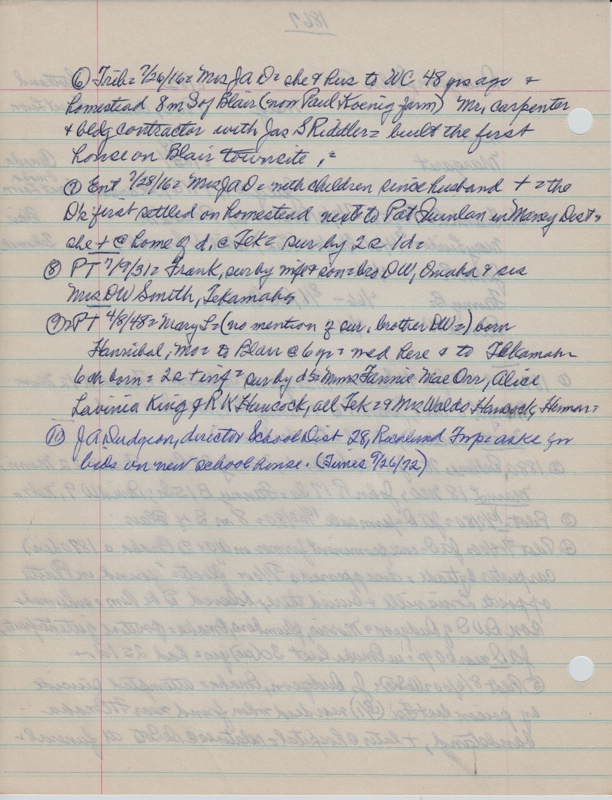 ⑥ Trib= 7/26/16= Mrs JAD= she & hus to WC 48 yrs ago &
homestead 8 m S of Blair (now Paul Koenig farm) Mr, carpenter
& bldg contractor with Jas S Riddler= built the first
house on Blair townsite,=
⑦ Ent 7/28/16= Mrs JAD= with children since husband + = the
D's first settled on homestead next to Pat Quinlan in Maney Dist=
she + @ home of d, @ Tek= sur by 2s 1d=
⑧ PT 7/9/31= Frank, sur by wife & son= bro DW, Omaha & sis
Mrs DW Smith, Tekamah,
PT 4/8/48= Mary L= (no mention of sur, brother DW=) born
Hannibal, Mo= to Blair @ 6 yr= med here & to Tekamah
6 ch born= 2s + inf= sur by ds= Mmes Fannie Mae Orr, Alice
Lavinia King & R K Hancock, all Tek= & Mrs Waldo Hancock, Herman=
J A Dudgeon, director School Dist 28, Richland Twp= asks for
bids on new school house. (Times 9/26/72)